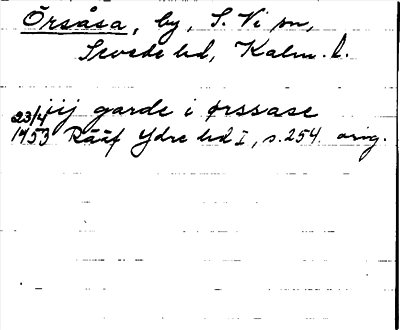 Örsåsa, by, S. Vi sn,
Sevede hd, Kalm. l.
iij garde i ørssase
23/4 1453 Rääf Ydre hd I, s. 254. orig.